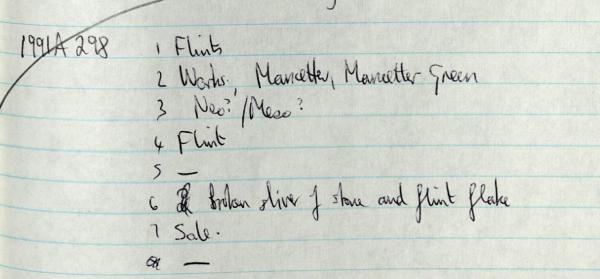 1991A 298 1 Flints
2 Warks., Mancetter, Mancetter Green
3 Neo?/Meso?
4 Flint
5 —
6 broken sliver of stone and flint flake
7 Sale.
8 —